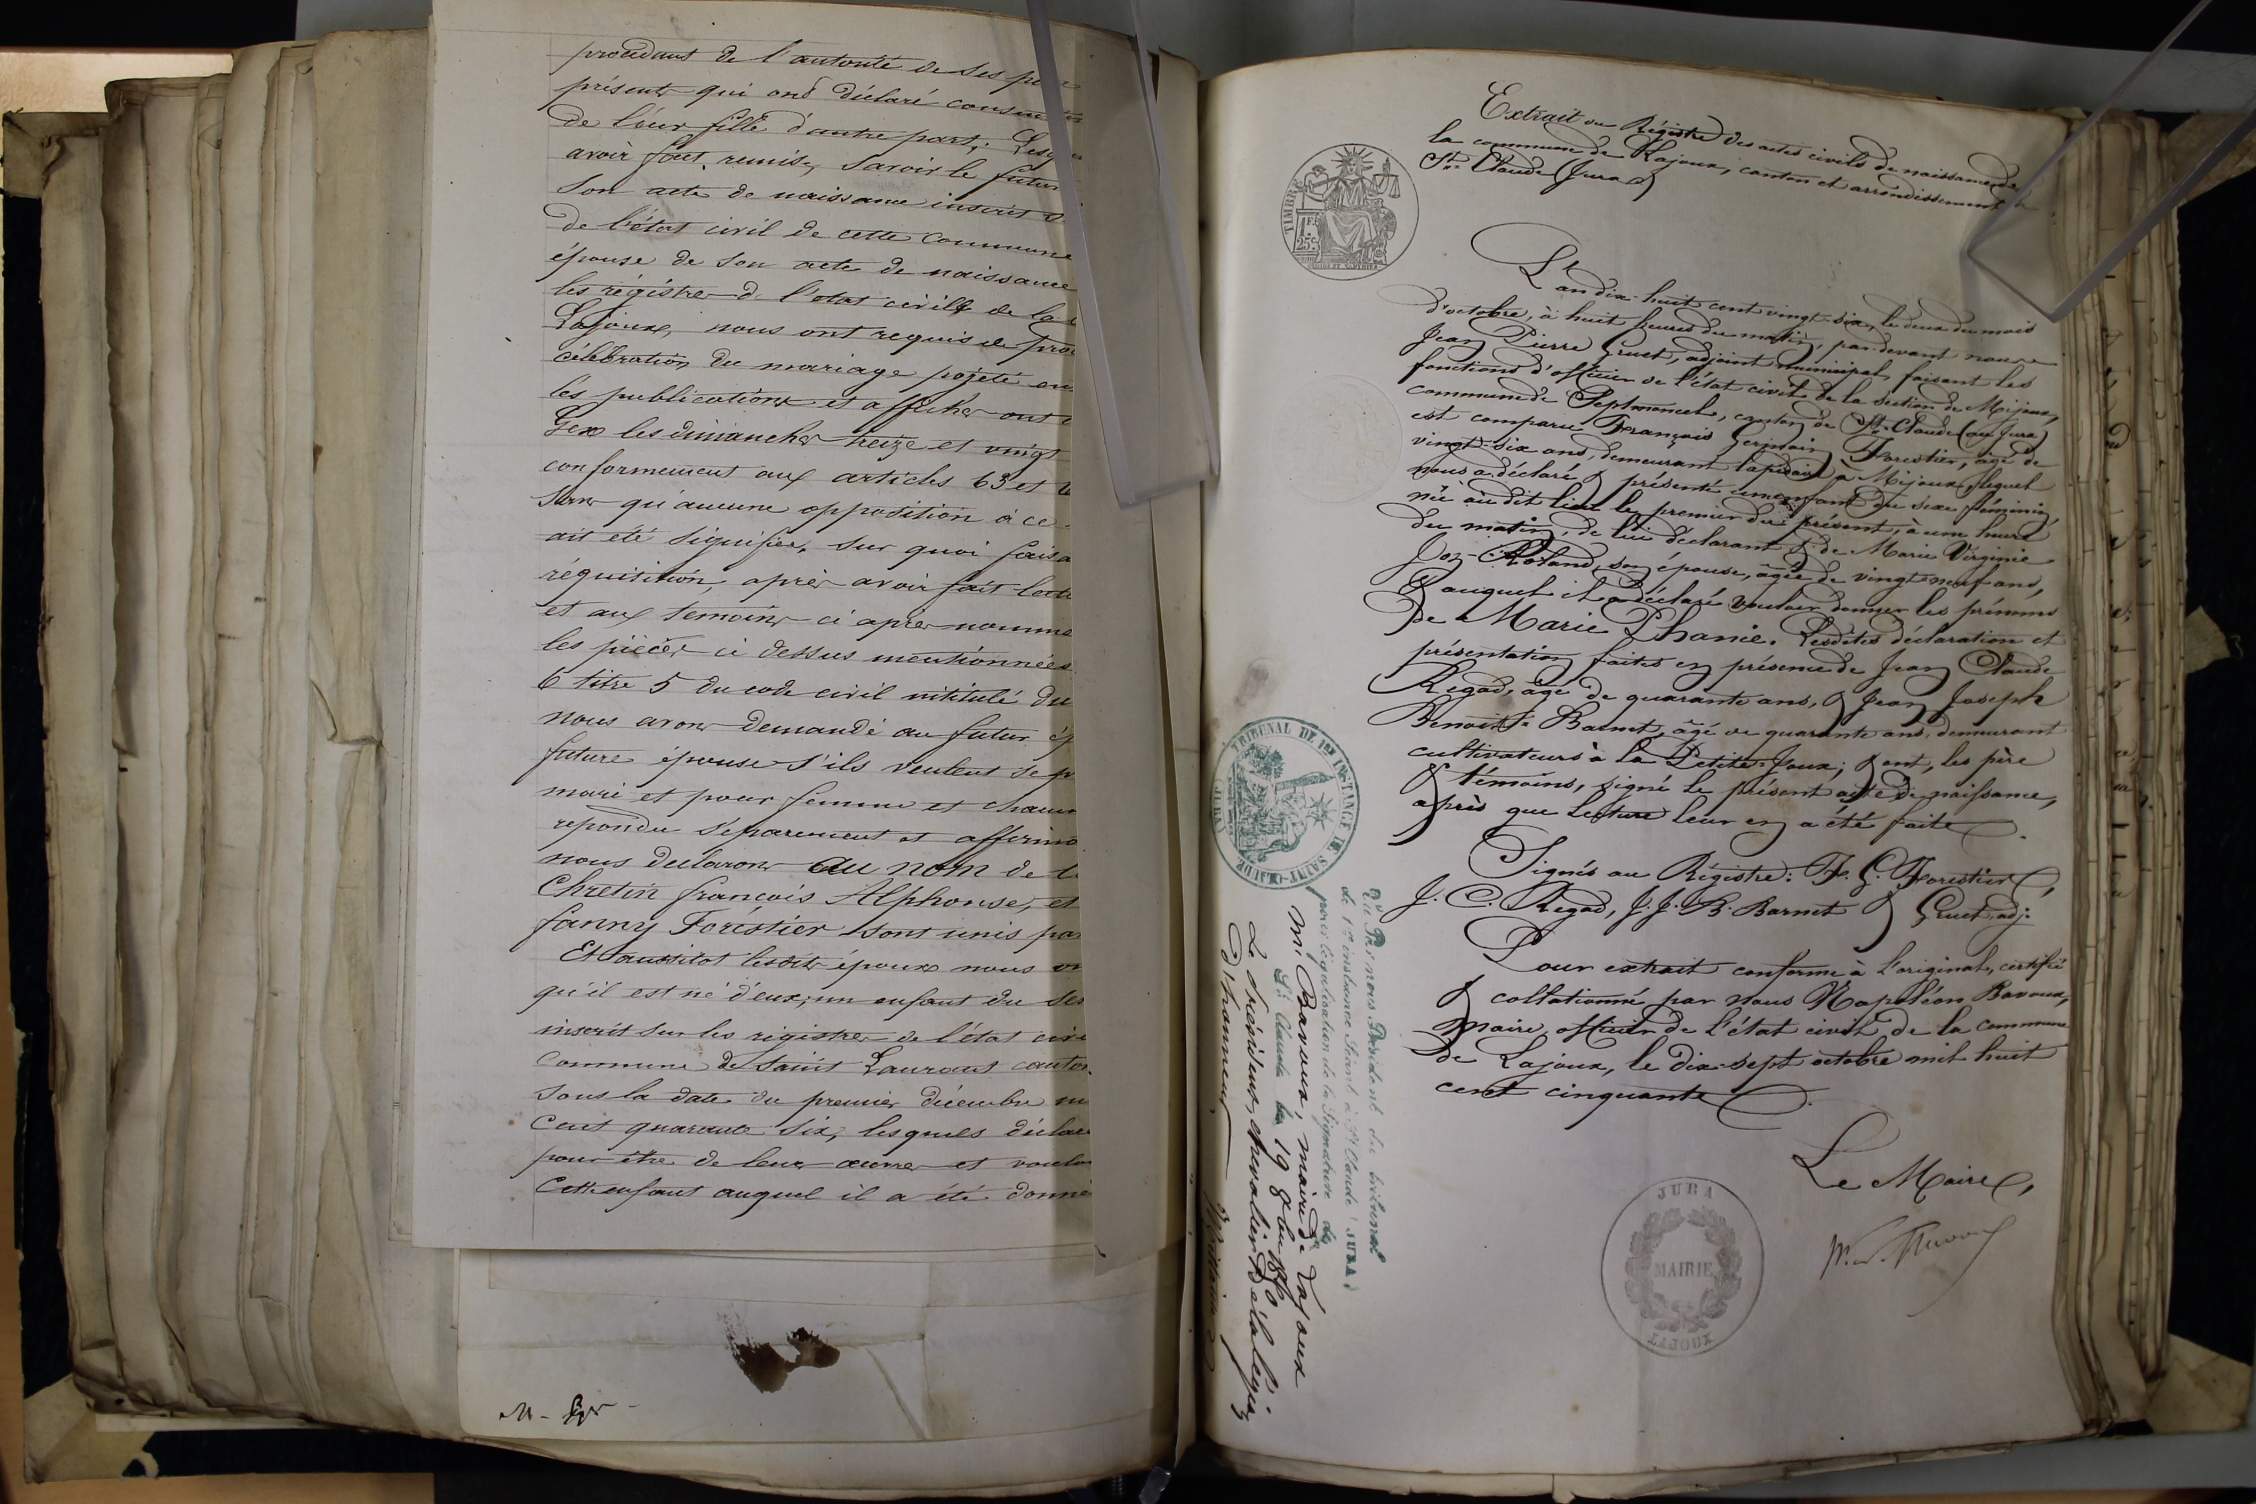 procédant de l'autorité de ses père
présents qui ont déclaré consentir
de leur fille d'autre part,
avoir fait remise, savoir le futur
son acte de naissance inscrit
de l'état civil de cette commune
épouse de son acte de naissance
les régistres d l'etat civille de la
Lajoux, nous ont requis de
célébration du mariage pojeté
les publications et affiches ont
Gex les dimanches treize et vingt
conformement aux articles 63 et
sans qu'aucune opposition à ce
ait été signifiée, sur quoi
réquisition, après avoir fait
et aux temoins ci après nommé
les pièces ci dessus mentionnées
6 titre 5 du code civil intitulé du
nous avons demandé au futur
future épouse s'ils veulent se
mari et pour femme et
repondu séparement et
nous declarons au nom de
Chretin françois Alphonse, et
fanny Foréstier sont unis
Et aussitot lesdits époux nous
qu'il est né d'eux, un enfant du
inscrit sur les régistres de l'état
commune de Saint Laurant
sous la date du premier décembre
cent quarante six, lesquels
pour être de leur œuvre et
cette enfant auquel il a été donné
Extrait du Régistre des actes civils de naissance de
la commune de Lajoux, canton et arrondissement de
St. Claude (Jura)
TIMBRE
1F.
25c.
L'an dix-huit cent vingt-six, le deux du mois
d'octobre, à huit heures du matin, par-devant nous
Jean Pierre Gruet, adjoint municipal, faisant les
fonctions d'officier de l'état civil de la section de Mijoux,
commune de Septmoncel, canton de St. Claude (au Jura)
est comparu François Germain Forestier, âgé de
vingt-six ans, demeurant lapidaire à Mijoux, lequel
nous a déclaré & présenté un enfant du sexe féminin,
née au dit lieu le premier du présent, à une heure
du matin, de lui déclarant & de Marie Virginie
Joz-Roland, son épouse, âgée de vingt-neuf ans,
& auquel il a déclaré vouloir donner les prénoms
de Marie Phanie. Lesdites déclaration et
présentation faites en présence de Jean Claude
Regad, âgé de quarante ans, & Jean Joseph
Benoit Barnet, âgé de quarante ans, demeurant
cultivateurs à la Petite-Joux; & ont, les père
& témoins, signé le présent acte de naissance,
après que lecture leur en a été faite.
Signés au Régistre: F. G. Forestier,
J. C. Regad, J. J. B. Barnet & Gruet, adj.
Pour extrait conforme à l'original, certifié
& collationné par nous Napoléon Bavoux,
maire, officier de l'état civil de la commune
de Lajoux, le dix-sept octobre mil huit
cent cinquante.
Le Maire,
JURA
MAIRIE
LAJOUX
TRIBUNAL DE 1re INSTANCE DE SAINT-CLAUDE
Vu Par nous Président du tribunal
de 1re instance Séant à St Claude (JURA)
pour légalisation de la Signature de
M. Bavoux, maire de Lajoux
St Claude le 19 8bre 1850
Le Président, chevalier De la légion
D'honneur